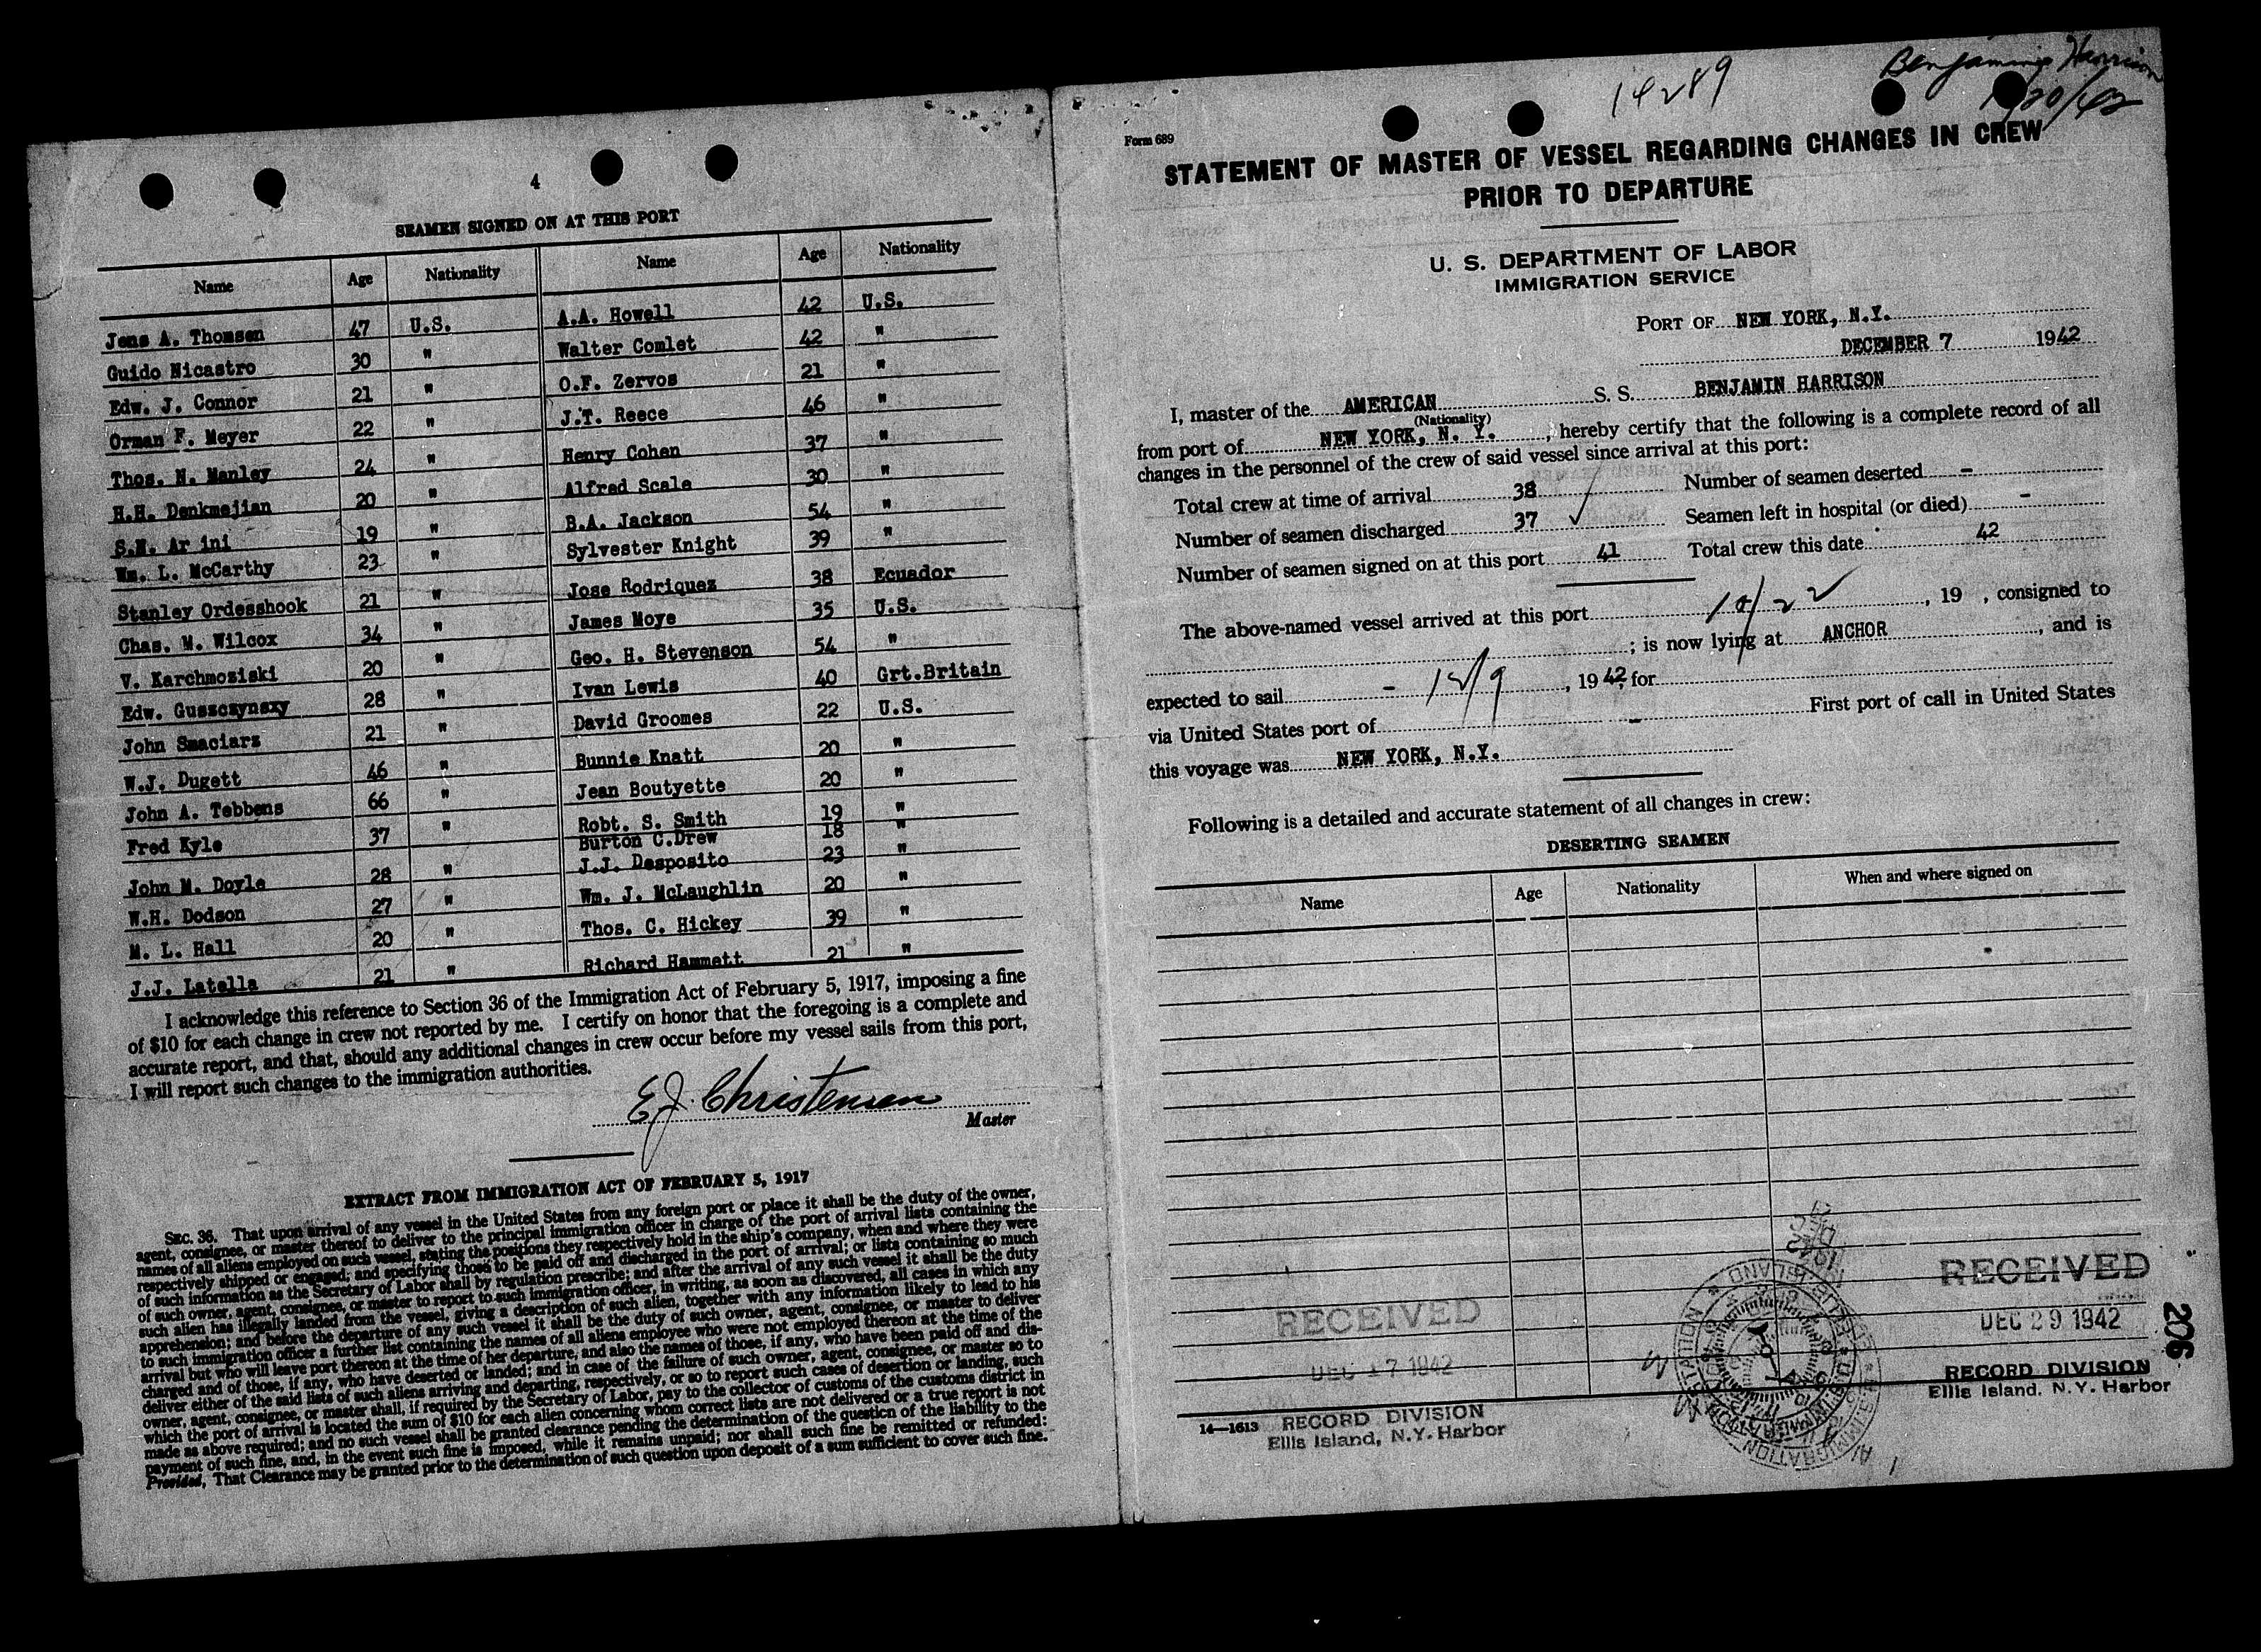 4
SEAMEN SIGNED ON AT THIS PORT
Name Age Nationality Name Age Nationality
Jens A. Thomsen 47 U.S. A.A. Howell 42 U.S.
Guido Nicastro 30 " Walter Comlet 42 "
Edw. J. Connor 21 " O.F. Zervos 21 "
Orman F. Meyer 22 " J.T. Reece 46 "
Thos. N. Manley 24 " Henry Cohen 37 "
H.H. Denkmejian 20 " Alfred Scale 30 "
S.N. Ar ini 19 " B.A. Jackson 54 "
Wm. L. McCarthy 23 " Sylvester Knight 39 "
Stanley Ordesshook 21 " Jose Rodriquez 38 Ecuador
Chas. M. Wilcox 34 " James Moye 35 U.S.
V. Karchmoziski 20 " Geo. H. Stevenson 54 "
Edw. Guszczynsxy 28 " Ivan Lewis 40 Grt.Britain
John Smaciarz 21 " David Groomes 22 U.S.
W.J. Dugett 46 " Bunnie Knatt 20 "
John A. Tebbens 66 " Jean Boutyette 20 "
Fred Kyle 37 " Robt. S. Smith 19 "
Burton C.Drew 18 "
John M. Doyle 28 " J.J. Desposito 23 "
W.H. Dodson 27 " Wm. J. McLaughlin 20 "
M. L. Hall 20 " Thos. C. Hickey 39 "
J.J. Latella 21 " Richard Hammett 21 "
I acknowledge this reference to Section 36 of the Immigration Act of February 5, 1917, imposing a fine
of $10 for each change in crew not reported by me. I certify on honor that the foregoing is a complete and
accurate report, and that, should any additional changes in crew occur before my vessel sails from this port,
I will report such changes to the immigration authorities.
E J. Christensen
Master
EXTRACT FROM IMMIGRATION ACT OF FEBRUARY 5, 1917
SEC. 36. That upon arrival of any vessel in the United States from any foreign port or place it shall be the duty of the owner,
agent, consignee, or master thereof to deliver to the principal immigration officer in charge of the port of arrival lists containing the
names of all aliens employed on such vessel, stating the positions they respectively hold in the ship's company, when and where they were
respectively shipped or engaged, and specifying those to be paid off and discharged in the port of arrival; or lists containing so much
of such information as the Secretary of Labor shall by regulation prescribe; and after the arrival of any such vessel it shall be the duty
of such owner, agent, consignee, or master to report to such immigration officer, in writing, as soon as discovered, all cases in which any
such alien has illegally landed from the vessel, giving a description of such alien, together with any information likely to lead to his
apprehension; and before the departure of any such vessel it shall be the duty of such owner, agent, consignee, or master to deliver
to such immigration officer a further list containing the names of all aliens employee who were not employed thereon at the time of the
arrival but who will leave port thereon at the time of her departure, and also the names of those, if any, who have been paid off and dis-
charged and of those, if any, who have deserted or landed; and in case of the failure of such owner, agent, consignee, or master so to
deliver either of the said lists of such aliens arriving and departing, respectively, or so to report such cases of desertion or landing, such
owner, agent, consignee, or master shall, if required by the Secretary of Labor, pay to the collector of customs of the customs district in
which the port of arrival is located the sum of $10 for each alien concerning whom correct lists are not delivered or a true report is not
made as above required; and no such vessel shall be granted clearance pending the determination of the question of the liability to the
payment of such fine, and, in the event such fine is imposed, while it remains unpaid; nor shall such fine be remitted or refunded:
Provided, That Clearance may be granted prior to the determination of such question upon deposit of a sum sufficient to cover such fine.
Benjamin Harrison
14289
Form 689
STATEMENT OF MASTER OF VESSEL REGARDING CHANGES IN CREW
PRIOR TO DEPARTURE
U. S. DEPARTMENT OF LABOR
IMMIGRATION SERVICE
PORT OF NEW YORK, N.Y.
DECEMBER 7 1942
I, master of the AMERICAN S. S. BENJAMIN HARRISON
(Nationality)
from port of NEW YORK, N. Y. , hereby certify that the following is a complete record of all
changes in the personnel of the crew of said vessel since arrival at this port:
Total crew at time of arrival 38 Number of seamen deserted -
Number of seamen discharged 37 ✓ Seamen left in hospital (or died) -
Number of seamen signed on at this port 41 Total crew this date 42
The above-named vessel arrived at this port , 19 , consigned to
; is now lying at ANCHOR , and is
expected to sail - 12/9 , 1942, for
via United States port of - First port of call in United States
this voyage was NEW YORK, N.Y.
Following is a detailed and accurate statement of all changes in crew:
DESERTING SEAMEN
Name Age Nationality When and where signed on
RECEIVED
DEC 17 1942
RECORD DIVISION
Ellis Island, N.Y. Harbor
14—1613
RECEIVED
DEC 29 1942
RECORD DIVISION
Ellis Island, N.Y. Harbor
206